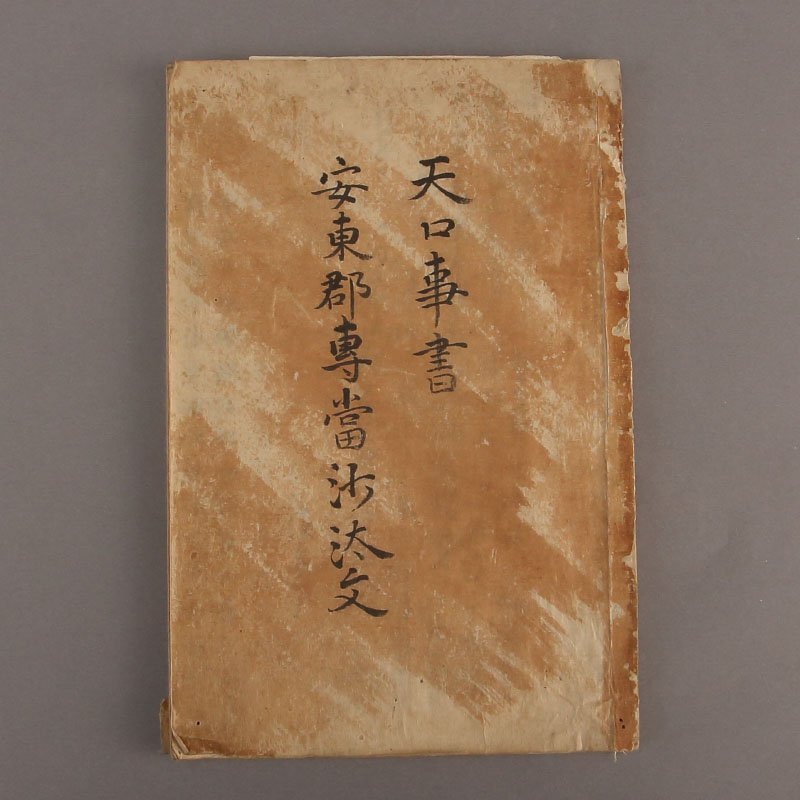 天口事書
安東郡專當沙汰文